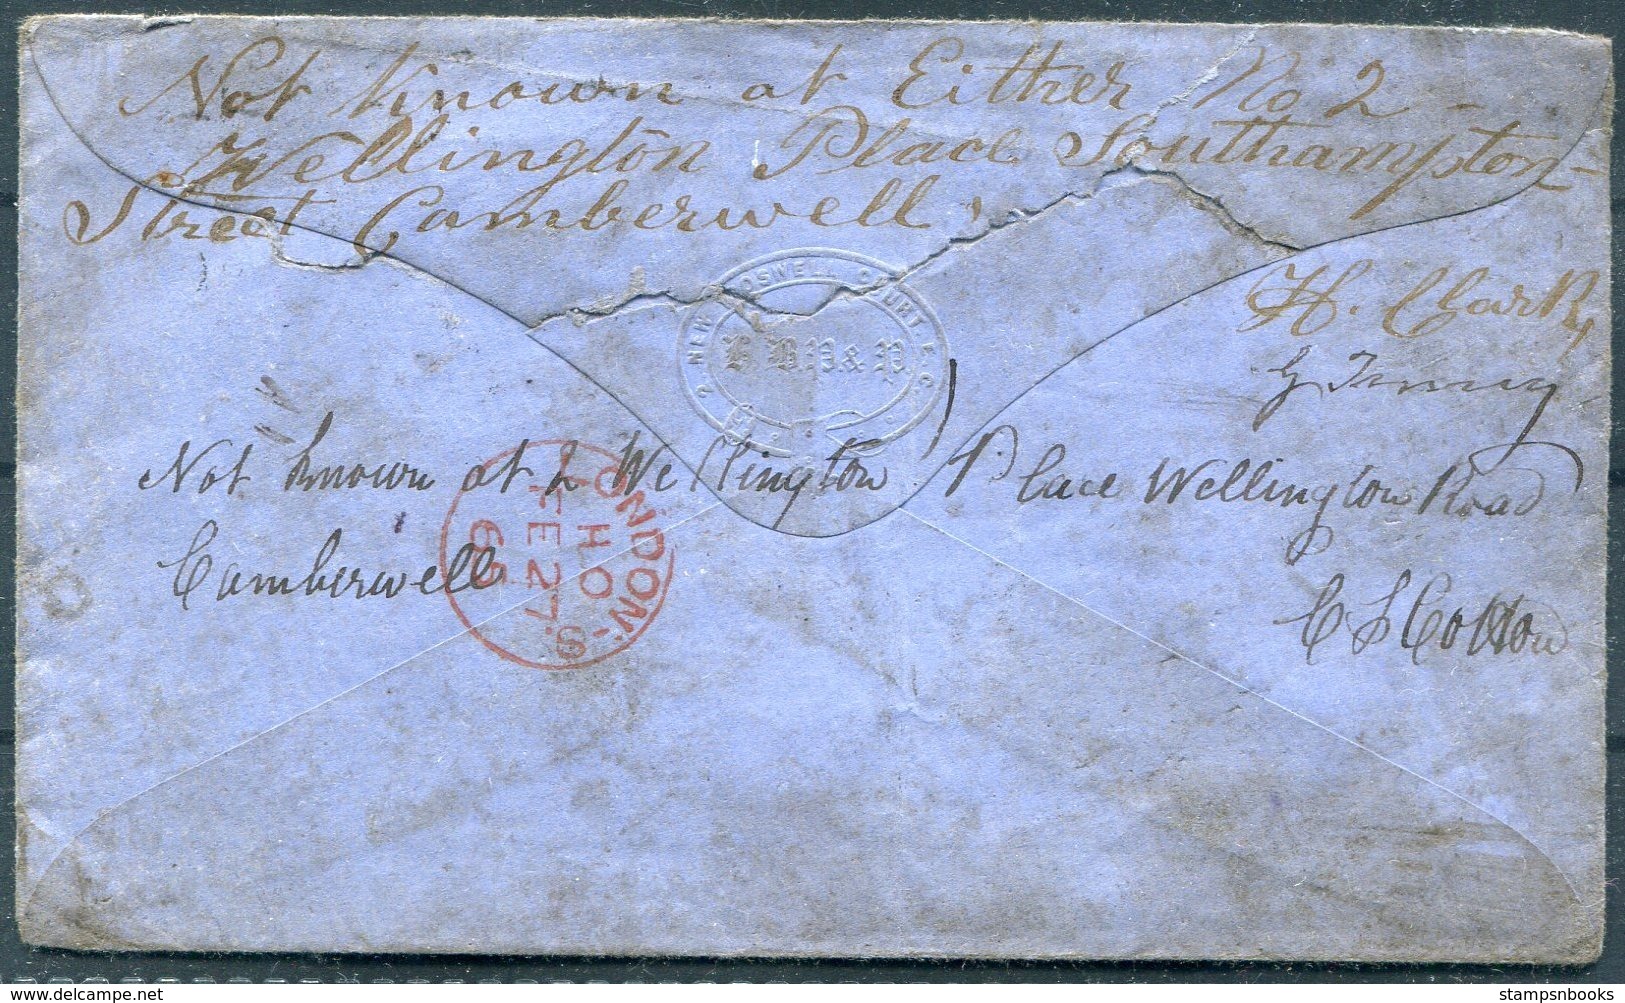 Not Known at Either No 2 -
Wellington Place Southampton -
Street Camberwell,
2 NEW BOSWELL COURT E.C.
H. Clark,
Not known at 2 Wellington Place Wellington Road
Camberwell
C S Cotton
LONDON.S
HO
FE 27
stampsnbooks
delcampe.net